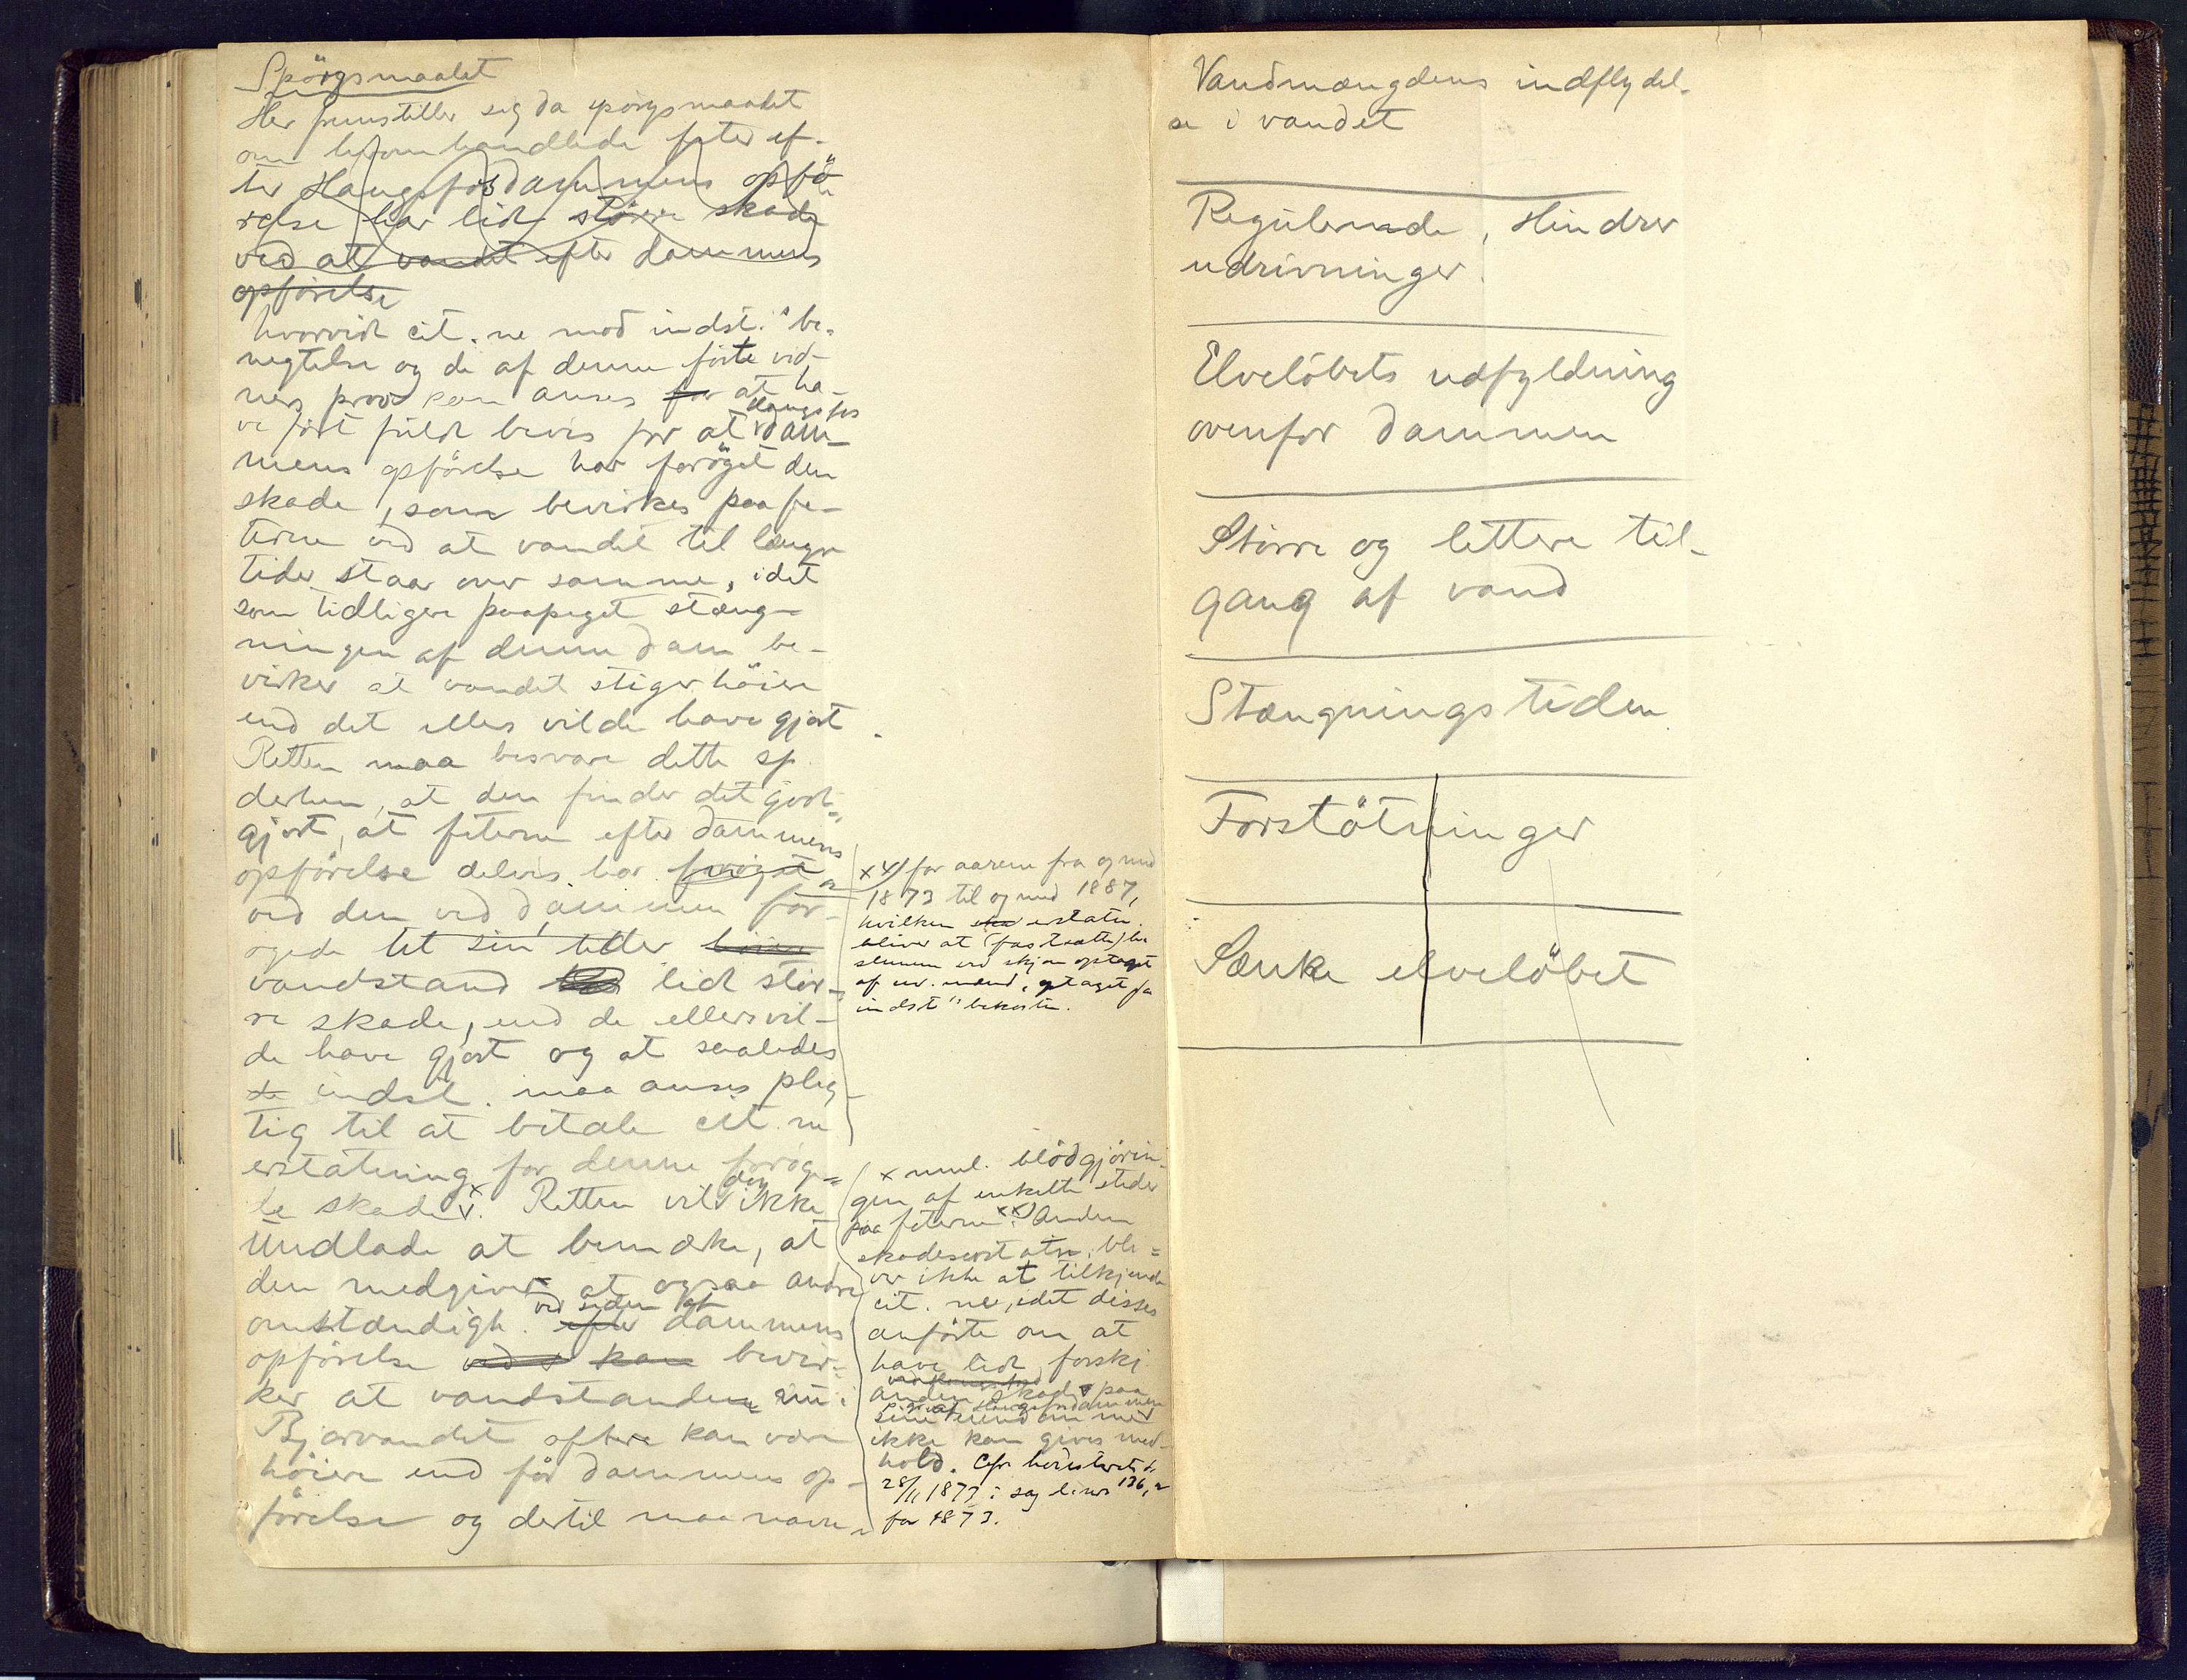 Spörgsmaalet
Her fremstiller sig da spörgsmaalet
om hvorvidt omhandlede feter ef-
ter Haugsfosdammens opfö-
relse har lidt större skade
ved at vandet efter dammens
opförelse
hvorvidt cit.ne mod indst.s be-
negtelse og de af denne förte vid-
ners prov kan anses for at ha-
ve fört fuldt bevis for at Haugsfos dam-
mens opförelse har foröget den
skade, som bevirkes paa fe-
terne ved at vandet til længre
tider staar over samme, idet
som tidligere paapeget stæng-
ningen af denne dam be-
virker at vandet stiger höiere
end det ellers vilde have gjort.
Retten maa besvare dette sp
derhen, at den finder det godt-
gjort, at feterne efter dammens
opförelse delvis har foröget
ved den ved dammen for-
ögede til sine tider höiere
vandstand lidt stör-
re skade, end de ellers vil-
de have gjort og at saaledes
indst. maa anses plig-
tig til at betale cit.ne
erstatning for denne foröge-
de skade x. Retten vil dog ikke
undlade at bemærke, at
den medgiver at ogsaa andre
omstændigh. ved siden af efter dammens
opförelse ved s kan bevir-
ker at vandstanden nu i
Bjorvandet oftere kan være
höiere end för dammens op-
förelse og dertil maa være
x4) for aarene fra og med
1873 til og med 1887,
hvilken erstatn.
bliver at (fastsætte) be
stemme ved skjön optaget
af uv. mænd, optaget for
indst" bekostn.
x nml. blödgjörin-
gen af enkelte steder
paa feterne xx) Anden
skadeserstatn. bli-
ver ikke at tilkjende
cit. ne, idet disses
anförte om at
have lidt forskj.
anden skade paa
sine af Haugsfosdammen
ikke kan gives med-
hold. Cfr höiesterets d.
28/11 1873 i sag l.nr 136, 2
for 1873.
Vandmængdens indflydel-
se i vandet
Regulerende, Hindrer
udrivninger.
Elvelöbets udfyldning
ovenfor dammen
Större og lettere til-
gang af vand
Stængningstiden
Forstötninger
Sænke elvelöbet